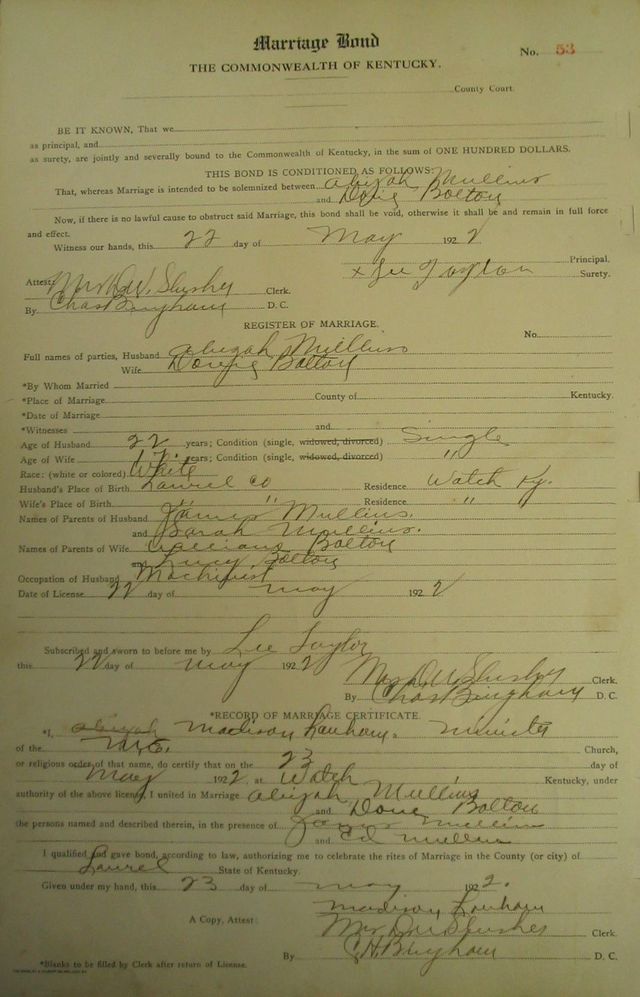 Marriage Bond
No. 53
THE COMMONWEALTH OF KENTUCKY.
County Court.
BE IT KNOWN, That we
as principal, and
as surety, are jointly and severally bound to the Commonwealth of Kentucky, in the sum of ONE HUNDRED DOLLARS.
THIS BOND IS CONDITIONED AS FOLLOWS:
That, whereas Marriage is intended to be solemnized between Abijah Mullins
and Bolton
Now, if there is no lawful cause to obstruct said Marriage, this bond shall be void, otherwise it shall be and remain in full force
and effect.
Witness our hands, this 22 day of May 1922
Principal.
x Lee Taylor Surety.
Attest: Mrs D.W. Slusher Clerk.
By Chas Bingham D. C.
REGISTER OF MARRIAGE.
No.
Full names of parties, Husband Abijah Mullins
Wife Bolton
*By Whom Married
*Place of Marriage County of Kentucky.
*Date of Marriage
*Witnesses and
Age of Husband 22 years; Condition (single, widowed, divorced) Single
Age of Wife years; Condition (single, widowed, divorced) "
Race: (white or colored) White
Husband's Place of Birth Laurel Co Residence Watch Ky.
Wife's Place of Birth " " Residence " "
Names of Parents of Husband James Mullins.
and Sarah Mullins.
Names of Parents of Wife Bolton
and Lucy Bolton
Occupation of Husband Machinist
Date of License 22 day of May 1922
Subscribed and sworn to before me by Lee Taylor
this 22 day of May 1922
Mrs D.W. Slusher Clerk.
By Chas Bingham D. C.
*RECORD OF MARRIAGE CERTIFICATE.
*I, Abijah Madison Lanham, minister
of the Church,
or religious order of that name, do certify that on the 23 day of
May 1922, at Watch Kentucky, under
authority of the above license, I united in Marriage Abijah Mullins
and Bolton
the persons named and described therein, in the presence of James Mullins
and Ed Mullins
I qualified and gave bond, according to law, authorizing me to celebrate the rites of Marriage in the County (or city) of
Laurel State of Kentucky.
Given under my hand, this 23 day of May 1922.
Madison Lanham
A Copy, Attest: Mrs D.W. Slusher Clerk.
By C.H. Bingham D. C.
*Blanks to be filled by Clerk after return of License.